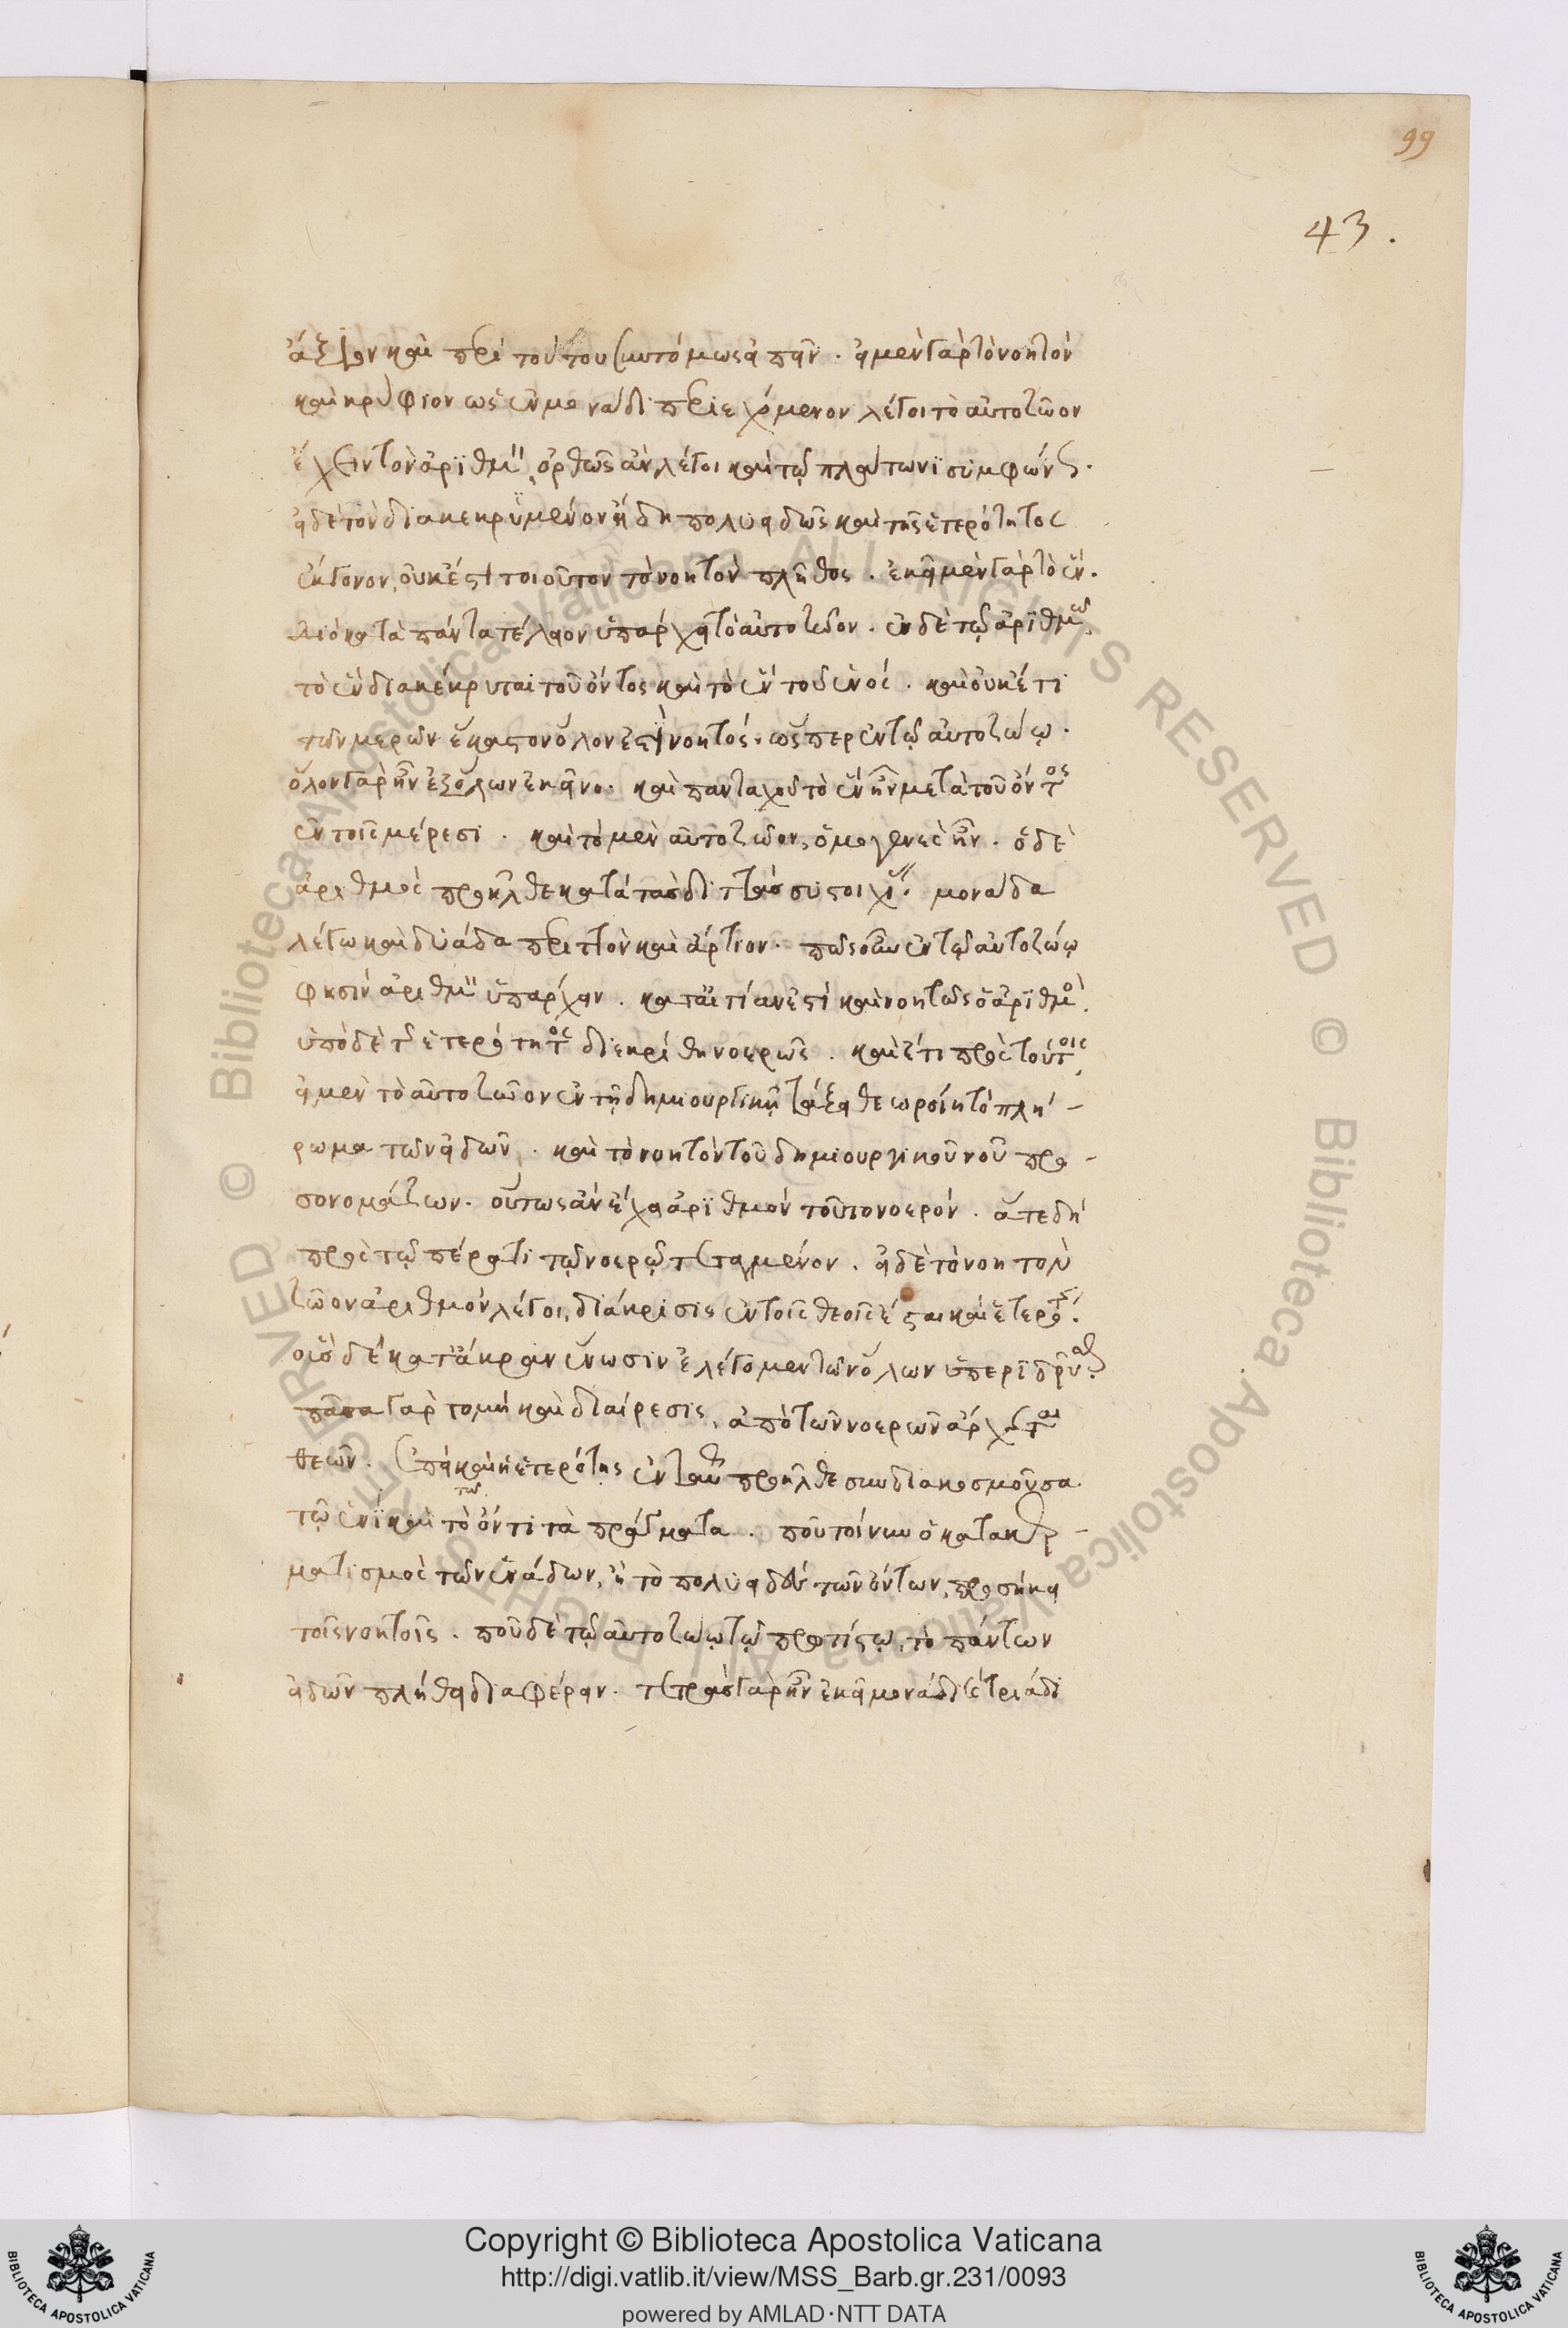 99
43.
ἄξιον καὶ περὶ τούτου συντόμως εἰπεῖν. εἰ μὲν γὰρ τὸ νοητὸν
καὶ κρύφιον ὡς ἐν μονάδι περιεχόμενον λέγοι τὸ αὐτοζῶον
ἔχειν τὸν ἀριθμὸν, ὀρθῶς ἂν λέγοι καὶ τῷ πλάτωνι συμφώνως.
εἰ δὲ τὸν διακεκριμένον ἤδη πολυειδῶς καὶ τῆς ἑτερότητος
ἔκγονον, οὐκ ἔστι τοιοῦτον τὸ νοητὸν πλῆθος. ἐκεῖ μὲν γὰρ τὸ ἕν.
διὸ κατὰ πάντα τέλειον ὑπάρχει τὸ αὐτοζῶον. ἐν δὲ τῷ ἀριθμῷ
τὸ ἓν διακέκριται τοῦ ὄντος καὶ τὸ ὂν τοῦ ἑνός. καὶ οὐκέτι
τῶν μερῶν ἕκαστον ὅλον ἐστὶ νοητός. ὥσπερ ἐν τῷ αὐτοζώῳ.
ὅλον γὰρ ἦν ἐξ ὅλων ἐκεῖνο. καὶ πανταχοῦ τὸ ἓν ἦν μετὰ τοῦ ὄντος
ἐν τοῖς μέρεσι. καὶ τὸ μὲν αὐτοζῶον, ὁμογενὲς ἦν. ὁ δὲ
ἀριθμὸς προῆλθε κατὰ τὰς διττὰς συστοιχίας. μονάδα
λέγω καὶ δυάδα περιττὸν καὶ ἄρτιον. πῶς οὖν ἐν τῷ αὐτοζώῳ
φησὶν ἀριθμὸν ὑπάρχειν. κατ' αἰτίαν ἐστὶ καὶ νοητῶς ὁ ἀριθμὸς.
ὑπὸ δὲ τῆς ἑτερότητος διεκρίθη νοερῶς. καὶ ἔτι πρὸς τούτοις,
εἰ μὲν τὸ αὐτοζῶον ἐν τῇ δημιουργικῇ τάξει θεωροίη τὸ πλή-
ρωμα τῶν εἰδῶν. καὶ τὸ νοητὸν τοῦ δημιουργικοῦ νοῦ προ-
σονομάζων. οὕτως ἂν ἔχει ἀριθμὸν τοῦτο νοερόν. ἅτε δὴ
πρὸς τῷ πέρατι τῷ νοερῷ τεταγμένον. εἰ δὲ τὸ νοητὸν
ζῶον ἀριθμὸν λέγοι, διάκρισις ἐν τοῖς θεοῖς ἔσται καὶ ἑτερότης.
οἷς δὲ κατ' ἄκραν ἕνωσιν ἐλέγομεν τῶν ὅλων ὑπεριδρῦσθαι.
πᾶσα γὰρ τομὴ καὶ διαίρεσις, ἀπὸ τῶν νοερῶν ἄρχεται
θεῶν. ἐπεὶ καὶ ἡ ἑτερότης ἐνταῦθα προῆλθε συνδιακοσμοῦσα
τῷ ἑνὶ καὶ τῷ ὄντι τὰ πράγματα. ποῦ τοίνυν ὁ κατακερ-
ματισμὸς τῶν ἑνάδων, ἢ τὸ πολυειδὲς τῶν ὄντων, προσήκει
τοῖς νοητοῖς. ποῦ δὲ τῷ αὐτοζώῳ τῷ πρωτίστῳ, τὸ πάντων
εἰδῶν πλήθει διαφέρειν. τετρὰς γὰρ ἦν ἐκεῖ μονάδι καὶ τριάδι
Copyright © Biblioteca Apostolica Vaticana
http://digi.vatlib.it/view/MSS_Barb.gr.231/0093
powered by AMLAD·NTT DATA